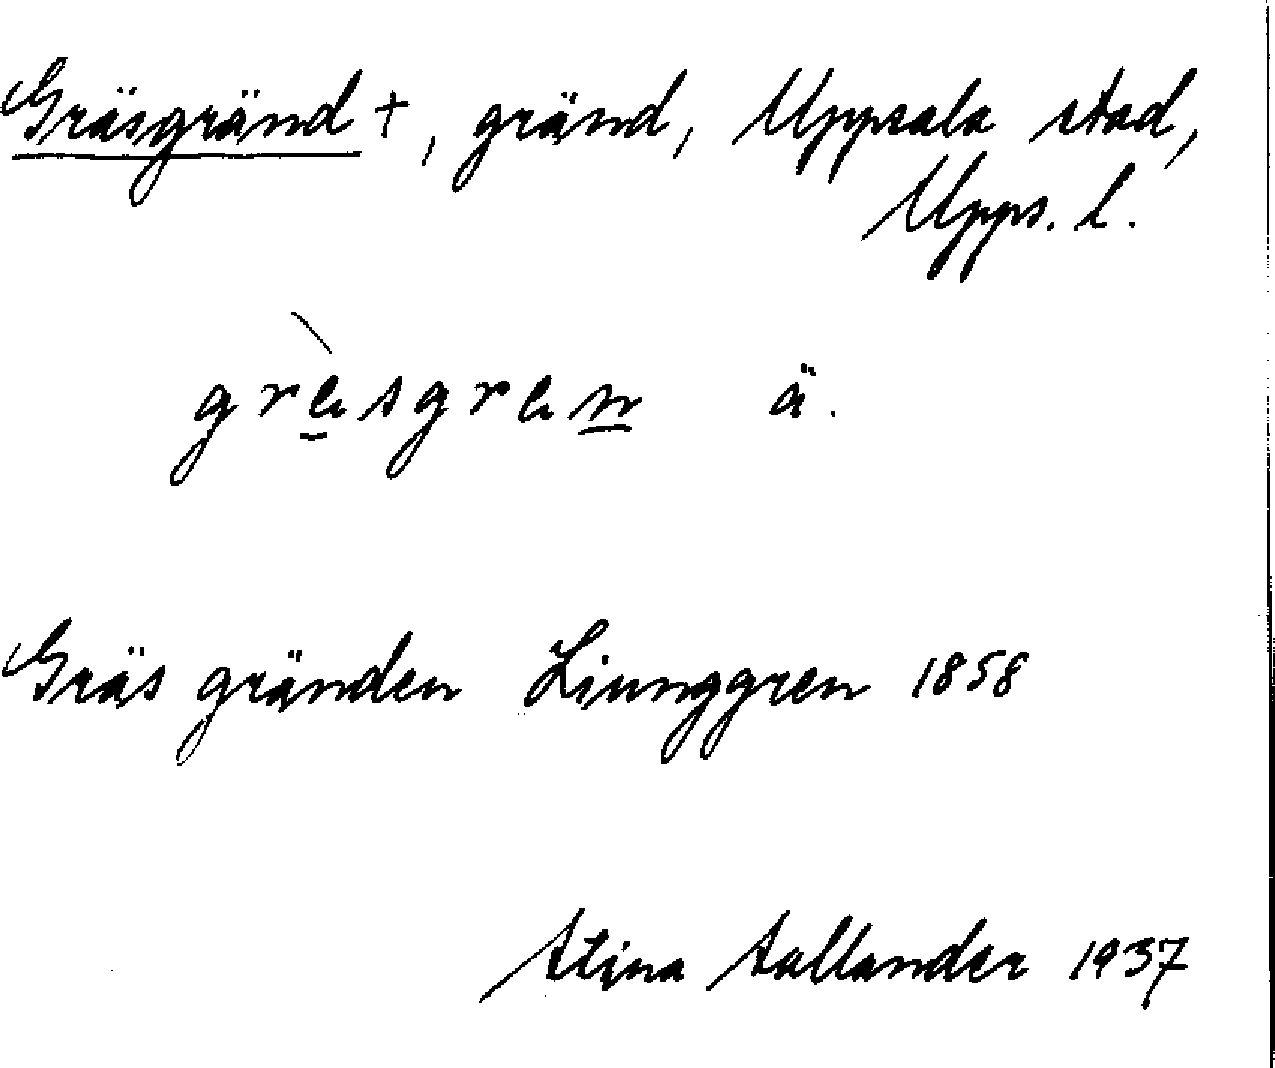 Gräsgränd +, gränd, Uppsala stad,
Upps. l.
grèsgren ä.
Gräs gränden Liunggren 1858
Stina Sallander 1937